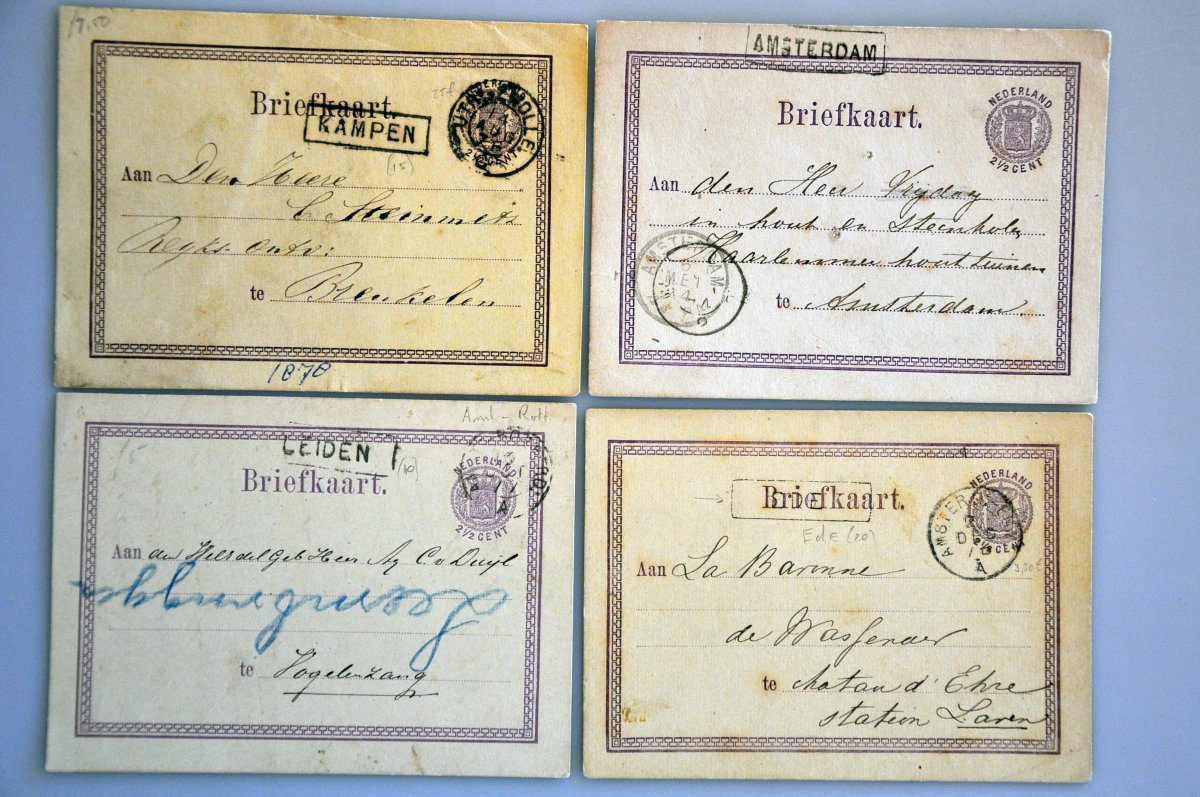 17.50
Briefkaart.
KAMPEN
(15)
25 f
ZWOLLE
2½ CENT
Aan Den Heere
C Steinmets
te Breukelen
1878
AMSTERDAM
Briefkaart.
NEDERLAND
2½ CENT
Aan den Heer Vrijdag
in hout en steenkolen
Haarlemmer houttuinen
te Amsterdam
AMSTERDAM
MEI
Aml - Rott
LEIDEN
(10)
15
Briefkaart.
NEDERLAND
2½ CENT
Aan den
C v Duijl
te Vogelenzang
EDE
Briefkaart.
NEDERLAND
CENT
AMSTER
A
Ede (20)
Aan La Baronne
de Wassenaer
te
d'Ehze
station Laren